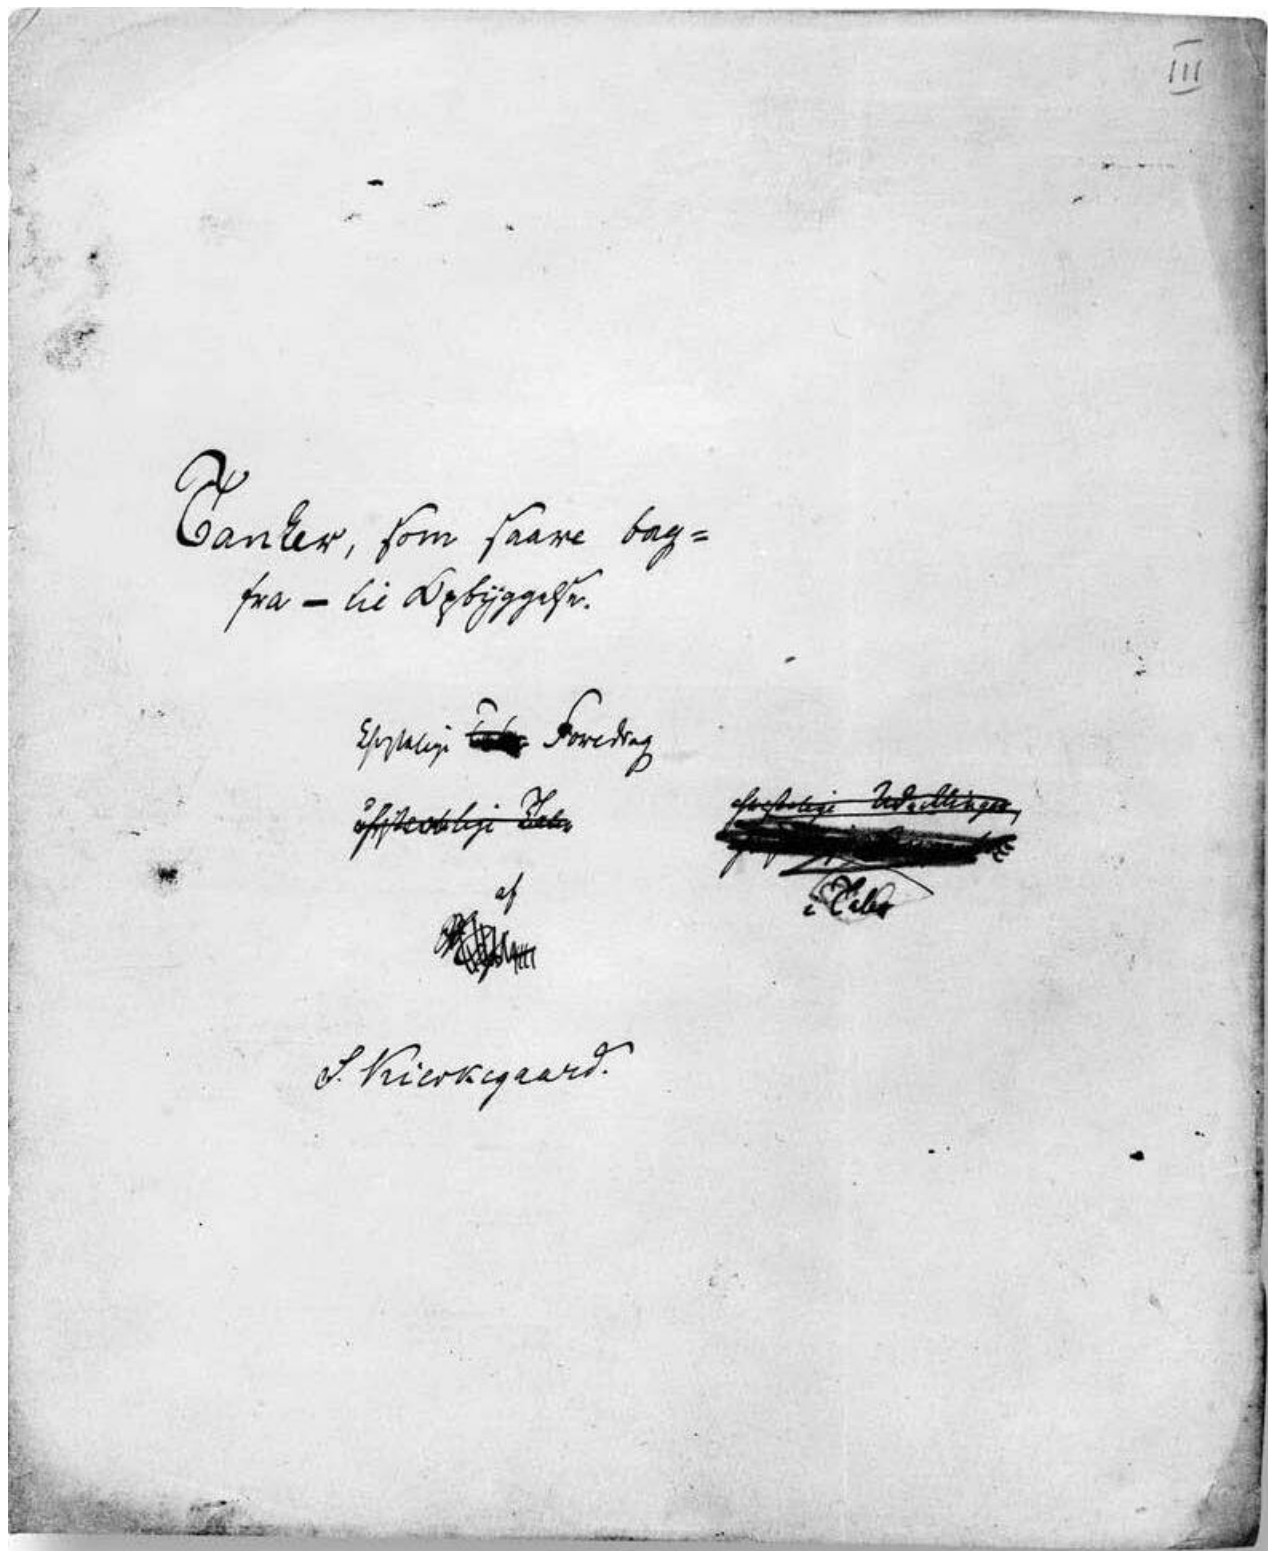 III
Tanker, som saare bag=
fra – til Opbyggelse.
Christelige Foredrag
Taler
christelige Udviklinger
i Taler
af
S. Kierkegaard.